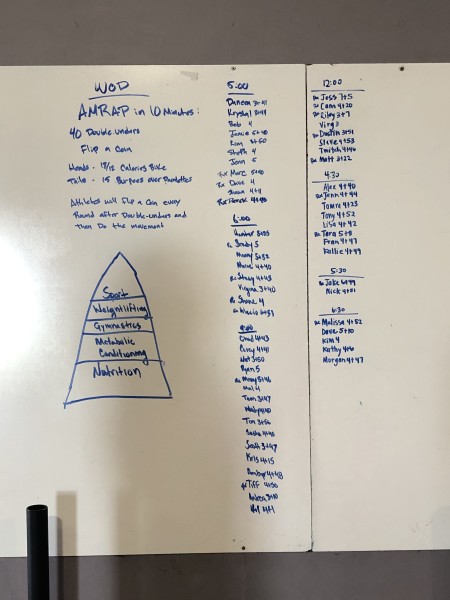 WOD
AMRAP in 10 Minutes:
40 Double-unders
Flip a Coin
Heads - 18/12 Calories Bike
Tails - 15 Burpees over Parallettes
Athletes will flip a Coin every
Round after Double-unders and
then Do the movement
Sport
Weightlifting
Gymnastics
Metabolic
Conditioning
Nutrition
5:00
Krystal
Bob 4
Jamie 5+40
Kim 3+50
Steph 4
Jenn 5
Rx Marc 5+40
Rx Dave 4
Shane 4+4
6:00
Sandy 5
Manny 5+52
Marie 4+40
Rx Stacy 4+43
Virginia 3+40
Rx Shane 4
Chad 4+43
Corey 4+41
Nat 3+50
Ryan 5
Rx Missy 5+46
Mal 4
Tom 3+47
Tim 3+56
Sasha 4+45
Scott 3+47
Kris 4+15
Amber 4+48
Rx Tiff 4+50
Andrea
4+1
12:00
Rx Jess 7+5
Rx Cam 4+20
Rx Riley 3+7
Rx Dustin 3+51
Steve 4+53
Twitch 4+40
Rx Matt 3+22
4:30
Alex 4+40
Rx Jenn 4+44
Tamra 4+23
Tony 4+52
Lisa 4+42
Rx Tara 5+8
Fran 4+47
Kellie 4+49
5:30
Rx Jake 6+49
Nick 4+51
6:30
Rx Malissa 4+52
Dave 5+10
Kim 4
Kathy 4+6
Morgan 4+47